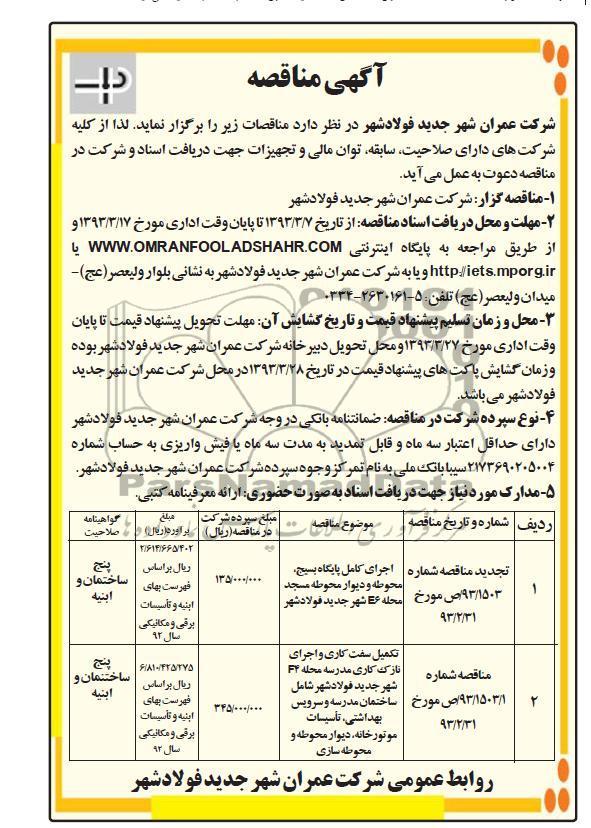 آگهی مناقصه
شرکت عمران شهر جدید فولادشهر در نظر دارد مناقصات زیر را برگزار نماید. لذا از کلیه
شرکت های دارای صلاحیت، سابقه، توان مالی و تجهیزات جهت دریافت اسناد و شرکت در
مناقصه دعوت به عمل می آید.
۱- مناقصه گزار: شرکت عمران شهر جدید فولادشهر
۲- مهلت و محل دریافت اسناد مناقصه: از تاریخ ۱۳۹۳/۳/۷ تا پایان وقت اداری مورخ ۱۳۹۳/۳/۱۷ و
از طریق مراجعه به پایگاه اینترنتی WWW.OMRANFOOLADSHAHR.COM یا
http://iets.mporg.ir و یا به شرکت عمران شهر جدید فولادشهر به نشانی بلوار ولیعصر (عج)-
میدان ولیعصر (عج) تلفن: ۵-۲۶۳۰۱۶۱-۰۳۳۴
۳- محل و زمان تسلیم پیشنهاد قیمت و تاریخ گشایش آن: مهلت تحویل پیشنهاد قیمت تا پایان
وقت اداری مورخ ۱۳۹۳/۳/۲۷ و محل تحویل دبیرخانه شرکت عمران شهر جدید فولادشهر بوده
و زمان گشایش پاکت های پیشنهاد قیمت در تاریخ ۱۳۹۳/۳/۲۸ در محل شرکت عمران شهر جدید
فولادشهر می باشد.
۴- نوع سپرده شرکت در مناقصه: ضمانتنامه بانکی در وجه شرکت عمران شهر جدید فولادشهر
دارای حداقل اعتبار سه ماه و قابل تمدید به مدت سه ماه یا فیش واریزی به حساب شماره
۲۱۷۳۶۹۰۲۰۵۰۰۴ سیبا بانک ملی به نام تمرکز وجوه سپرده شرکت عمران شهر جدید فولادشهر.
ParsNamadData
۵- مدارک مورد نیاز جهت دریافت اسناد به صورت حضوری: ارائه معرفینامه کتبی.
ردیف | شماره و تاریخ مناقصه | موضوع مناقصه | مبلغ سپرده شرکت در مناقصه (ریال) | مبلغ برآورد (ریال) | گواهینامه صلاحیت
۱ | تجدید مناقصه شماره ۹۳/۱۵۰۳/ص مورخ ۹۳/۲/۳۱ | اجرای کامل پایگاه بسیج، محوطه و دیوار محوطه مسجد محله E6 شهر جدید فولادشهر | ۱۳۵/۰۰۰/۰۰۰ | ۲/۶۱۴/۶۶۵/۴۰۲ ریال براساس فهرست بهای ابنیه و تأسیسات برقی و مکانیکی سال ۹۲ | پنج ساختمان و ابنیه
۲ | مناقصه شماره ۹۳/۱۵۰۳/۱/ص مورخ ۹۳/۲/۳۱ | تکمیل سفت کاری و اجرای نازک کاری مدرسه محله F4 شهر جدید فولادشهر شامل ساختمان مدرسه و سرویس بهداشتی، تأسیسات موتورخانه، دیوار محوطه و محوطه سازی | ۳۴۵/۰۰۰/۰۰۰ | ۶/۸۱۰/۴۲۵/۲۷۵ ریال براساس فهرست بهای ابنیه و تأسیسات برقی و مکانیکی سال ۹۲ | پنج ساختمان و ابنیه
روابط عمومی شرکت عمران شهر جدید فولادشهر